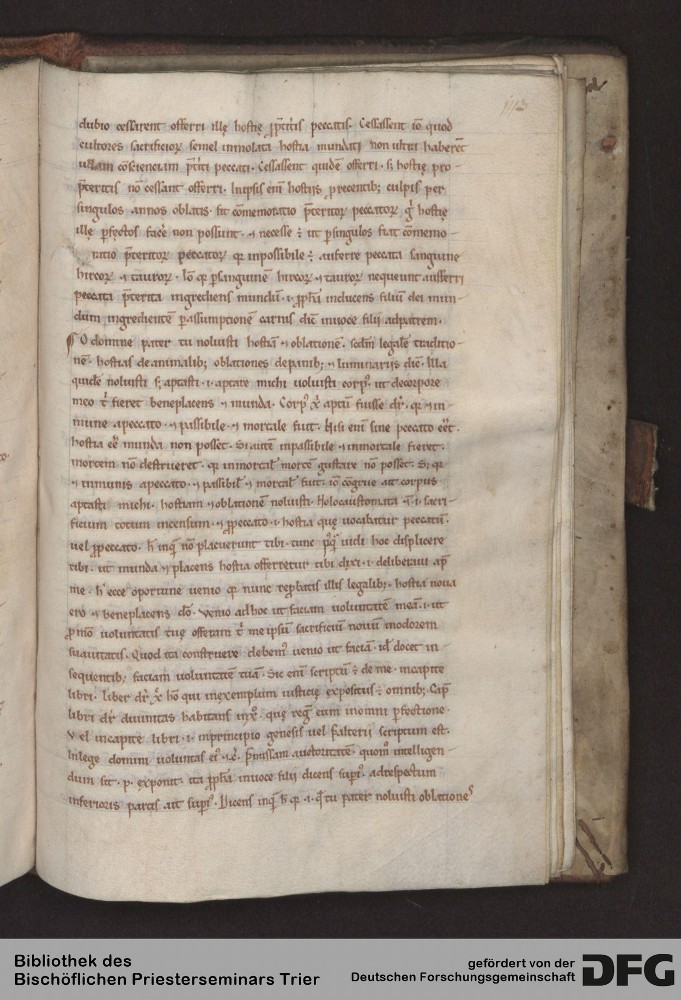 113
dubio cessarent offerri illę hostię p̱ p̄teritis peccatis. Cessassent iō quod
cultores sacrificioꝝ semel inmolata hostia mundati non ultri haberēt
ullam cōscienciam p̄tīti peccati. Cessassent quidē offerri. s; hostię pro-
p̄teritis nō cessant offerri. In ipsis eni hostiis precentib; culpis per
singulos annos oblatis. fit cōmemoratio p̄teritoꝝ peccatoꝝ g̊ hostię
illę ꝑfectos facē non possunt. ⁊ necesse ÷ ut ꝑ singulos fiat cōmemo-
ratio p̄teritoꝝ peccatoꝝ qꝛ inpossibile ÷ auferre peccata sanguine
hircoꝝ ⁊ tauroꝝ. Iō qꝛ ꝑ sanguinē hircoꝝ ⁊ tauroꝝ nequeunt aufferri
peccata p̄terita ingrediens mundū. i. ꝓpħa inducens filium dei mun-
dum ingredientē ꝑ assumptionē carnis dic̄ in uoce filii ad patrem.
O domine pater tu noluisti hostiā ⁊ oblationē. sedm legalē traditio-
nē. hostias de animalib; oblationes de panib; ⁊ luminariis dic̄. Illa
quidē noluisti s; aptasti. i. aptare michi uoluisti corpꝰ. ut de corpore
meo t̄ fieret beneplacens ⁊ munda. Corpꝰ x̄ aptū fuisse dr̄. qꝛ ⁊ in-
mune a peccato. ⁊ passibile ⁊ mortale fuit. Nisi eni sine peccato eēt.
hostia eē munda non posset. Si autē inpassibile ⁊ inmortale fieret.
mortem nō destrueret. qꝛ inmortal' mortē gustare nō posset. Sꝫ qꝛ
⁊ inmunis a peccato. ⁊ passibil' ⁊ mortal' fuit. iō cōgrue ait corpus
aptasti michi. hostiam ⁊ oblationē noluisti. Holocaustomata q̄. i. sacri-
ficium totum incensum. ⁊ p̱ peccato. i. hostia quę uocabatur peccatū.
uel pro peccato. h̄ inq̄ nō placuerunt tibi. tunc p̱qꝫ uidi hoc displicere
tibi. ut munda ⁊ placens hostia offerretur tibi dixi. i. deliberaui ap̄
me. h̄ ecce oportune uenio qꝛ nunc reꝓbatis illis legalib;. hostia noua
ero ⁊ beneplacens dō. Venio ad hoc ut faciam uoluntatē meā. i. ut
uoluntatis tuę offeram t̄ me ipsū sacrificiū nouū in odorem
suauitatis. Quod ita construere debemꝰ uenio ut faciā. id docet in
sequentib; faciam uoluntatē tuā. Sic eni scriptū ÷ de me. in capite
libri. liber dr̄ x̄ hō qui in exemplum iusticię expositus ÷ omnib;. Cap̄
libri dr̄ diuinitas habitans in xo. quę regit eum in omni ꝑfectione.
Vel in capite libri. i. in principio genesis uel psalterii scriptum est.
In lege domini uoluntas eiꝰ ⁊c̄. p̄missam auctoritatē. quom̊ intelligen-
dum sit. p. exponit. ita ꝓpħa in uoce filii dicens supiꝰ. ad respectum
inferioris partis ait supiꝰ. Dicens inq̄ h̄ qꝛ. i. q̄ tu pater noluisti oblationes
Bibliothek des
Bischöflichen Priesterseminars Trier
gefördert von der
Deutschen Forschungsgemeinschaft
DFG